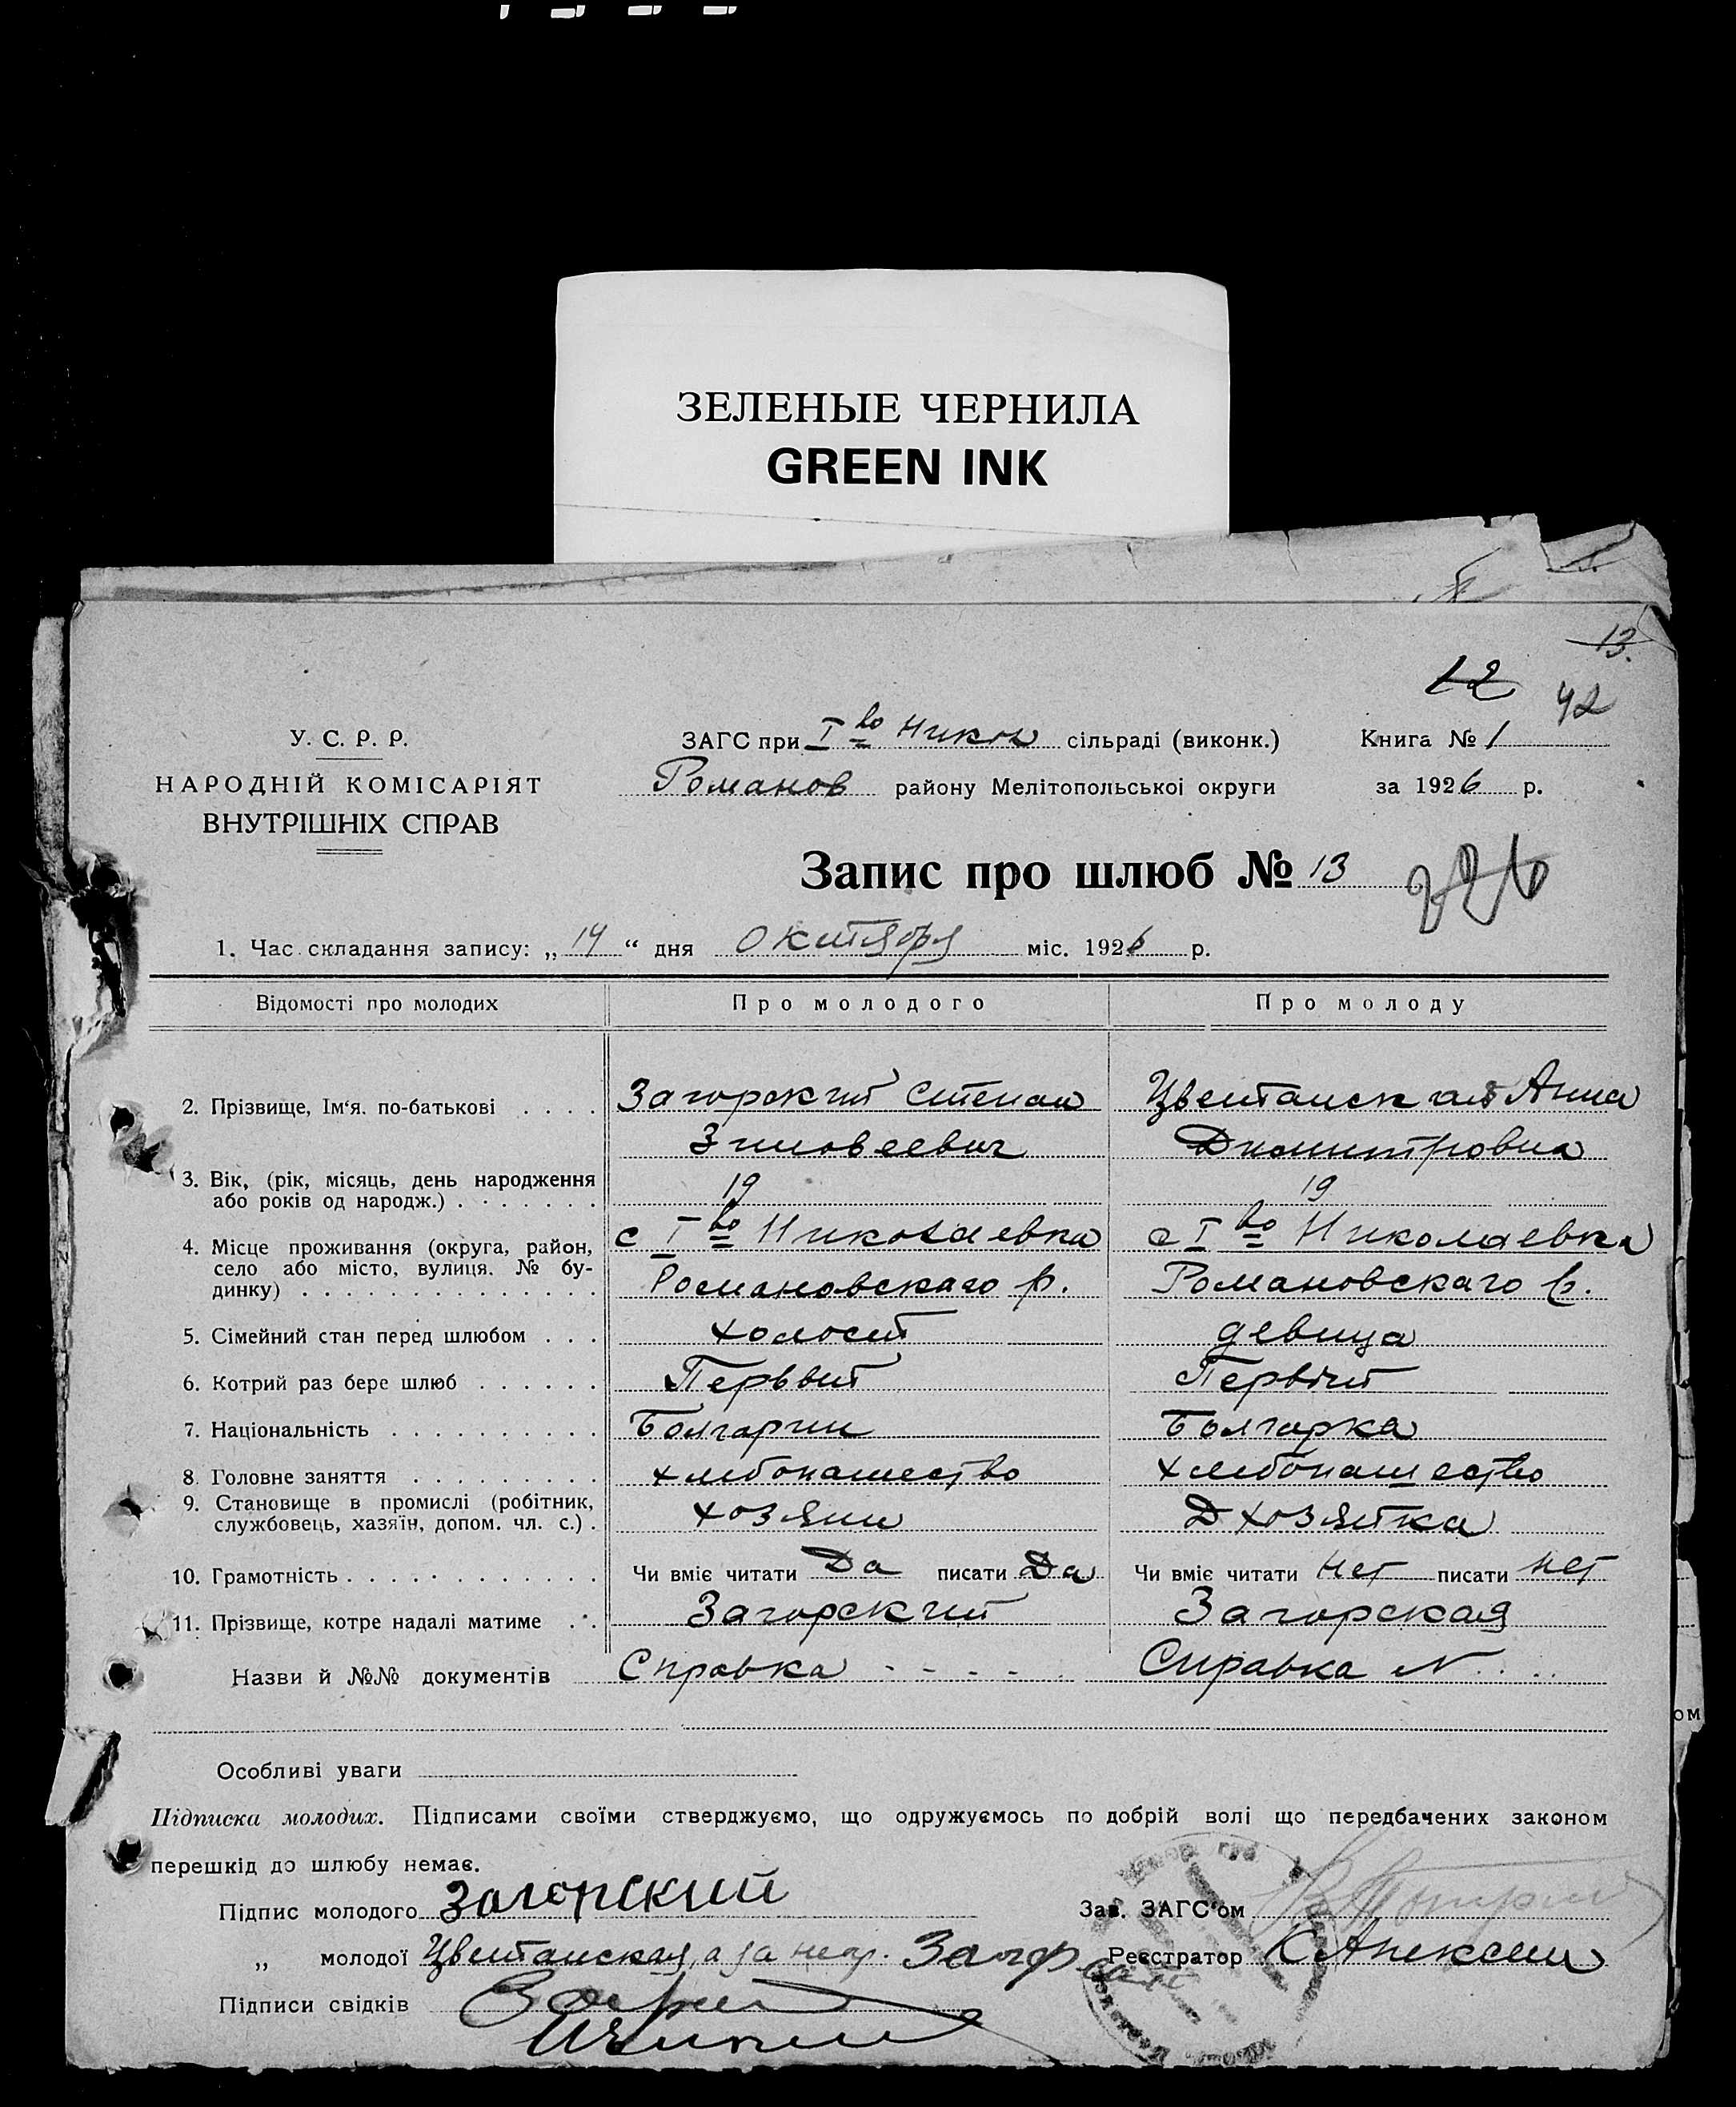 ЗЕЛЕНЫЕ ЧЕРНИЛА
GREEN INK
13.
12
42
У. С. Р. Р.
НАРОДНІЙ КОМІСАРІЯТ
ВНУТРІШНІХ СПРАВ
ЗАГС при I во Никол сільраді (виконк.)
Книга № 1
Романов району Мелітопольськоі округи
за 1926 р.
Запис про шлюб № 13
1. Час складання запису: „ 14 “ дня октября міс. 1926 р.
Відомості про молодих
Про молодого
Про молоду
2. Прізвище, Ім‘я, по-батькові . . . .
Загорский Степан
Зиновеевич
Цветанская Анна
Димитровна
3. Вік, (рік, місяць, день народження
або років од народж.) . . . . . . .
19
19
4. Місце проживання (округа, район,
село або місто, вулиця, № бу-
динку) . . . . . . . . . . . . . .
с I во Николаевка
Романовскаго р.
с I во Николаевка
Романовскаго р.
5. Сімейний стан перед шлюбом . . .
холост
девица
6. Котрий раз бере шлюб . . . . . .
Первый
Первый
7. Національність . . . . . . . . . .
Болгарин
Болгарка
8. Головне заняття . . . . . . . . .
хлебопашество
хлебопашество
9. Становище в промислі (робітник,
службовець, хазяїн, допом. чл. с.) .
хозяин
Д хозяйка
10. Грамотність . . . . . . . . . . . .
Чи вміє читати Да писати Да
Чи вміє читати Нет писати нет
11. Прізвище, котре надалі матиме . .
Загорский
Загорская
Назви й №№ документів
Справка - - - - .
Справка N . . . .
Особливі уваги
Підписка молодих. Підписами своїми стверджуємо, що одружуємось по добрій волі що передбачених законом
перешкід до шлюбу немає.
Підпис молодого Загорский
Зав. ЗАГС‘ом
„ молодої Цветанская, а за негр.
Реєстратор
Підписи свідків
ом